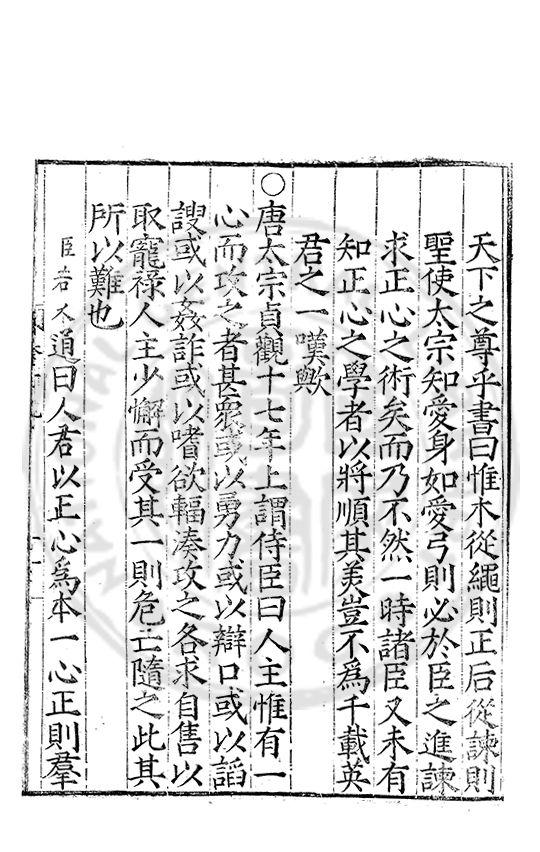 天下之尊乎書曰惟木從繩則正后從諫則
聖使太宗知愛身如愛弓則必於臣之進諫
求正心之術矣而乃不然一時諸臣又未有
知正心之學者以將順其美豈不爲千載英
君之一嘆歟
○唐太宗貞觀十七年上謂侍臣曰人主惟有一
心而攻之者甚衆或以勇力或以辯口或以諂
諛或以姦詐或以嗜欲輻湊攻之各求自售以
取寵祿人主少懈而受其一則危亡隨之此其
所以難也
臣若水通曰人君以正心爲本一心正則羣